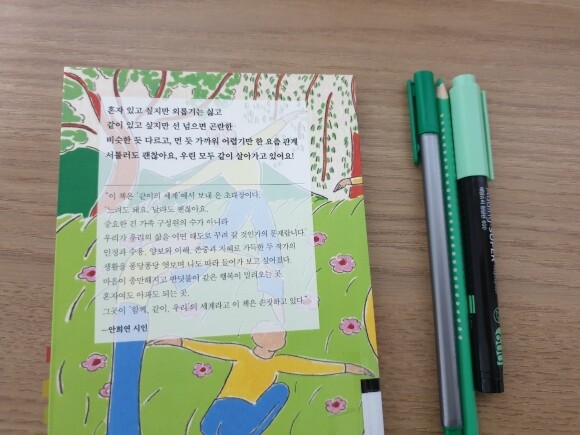 혼자 있고 싶지만 외롭기는 싫고
같이 있고 싶지만 선 넘으면 곤란한
비슷한 듯 다르고, 먼 듯 가까워 어렵기만 한 요즘 관계
서툴러도 괜찮아요, 우린 모두 같이 살아가고 있어요!
"이 책은 '같이의 세계'에서 보내 온 초대장이다.
느려도 돼요. 달라도 괜찮아요.
중요한 건 가족 구성원의 수가 아니라
우리가 우리의 삶을 어떤 태도로 꾸려 갈 것인가의 문제랍니다.
인정과 수용, 양보와 이해, 존중과 지혜로 가득한 두 작가의
생활을 퐁당퐁당 엿보며 나도 따라 들어가 보고 싶어졌다.
마음이 충만해지고 반딧불이 같은 행복이 밀려오는 곳.
혼자여도 아파도 되는 곳.
그곳이 '함께, 같이, 우리'의 세계라고 이 책은 손짓하고 있다."
—안희연 시인
SUPER